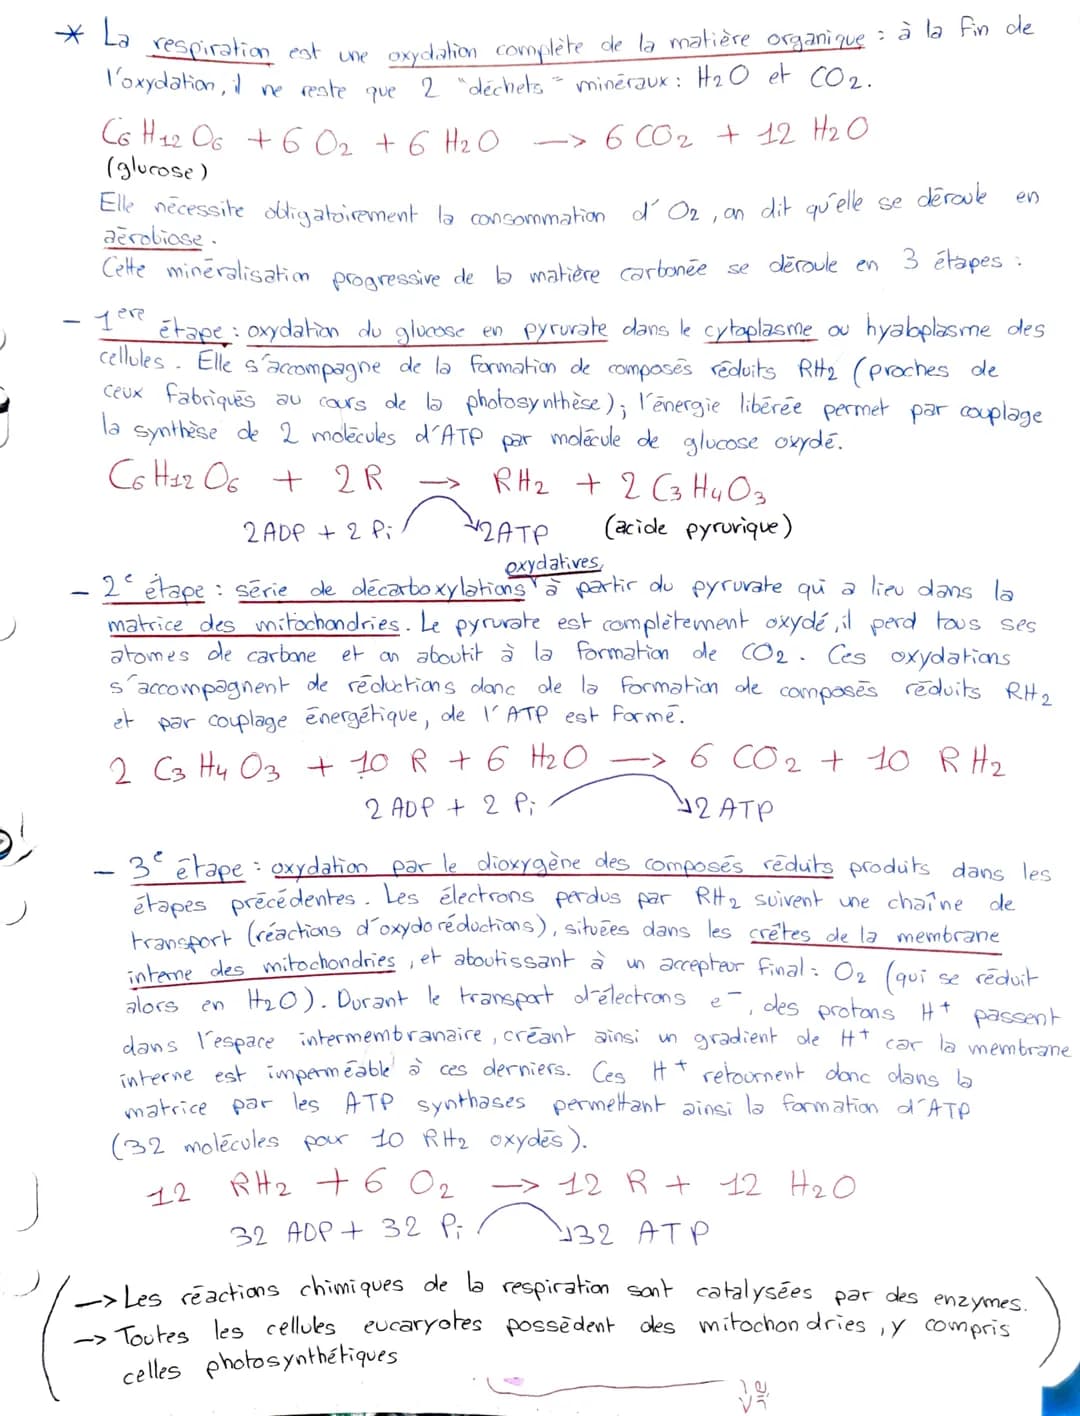 * La respiration est une oxydation complète de la matière organique : à la fin de
l'oxydation, il ne reste que 2 "déchets" minéraux : H2O et CO2.
C6H12O6 + 6 O2 + 6 H2O -> 6 CO2 + 12 H2O
(glucose)
Elle nécessite obligatoirement la consommation d'O2, on dit qu'elle se déroule en
aérobiose.
Cette minéralisation progressive de la matière carbonée se déroule en 3 étapes :
- 1ere étape : oxydation du glucose en pyruvate dans le cytoplasme ou hyaloplasme des
cellules. Elle s'accompagne de la formation de composés réduits RH2 (proches de
ceux fabriqués au cours de la photosynthèse); l'énergie libérée permet par couplage
la synthèse de 2 molécules d'ATP par molécule de glucose oxydé.
C6H12O6 + 2R -> RH2 + 2 C3H4O3
2ADP + 2 Pi 2ATP (acide pyruvique)
oxydatives
- 2e étape : série de décarboxylations à partir du pyruvate qui a lieu dans la
matrice des mitochondries. Le pyruvate est complètement oxydé, il perd tous ses
atomes de carbone et on aboutit à la formation de CO2. Ces oxydations
s'accompagnent de réductions donc de la formation de composés réduits RH2
et par couplage énergétique, de l'ATP est formé.
2 C3H4O3 + 10 R + 6 H2O -> 6 CO2 + 10 RH2
2 ADP + 2 Pi 2 ATP
- 3e étape : oxydation par le dioxygène des composés réduits produits dans les
étapes précédentes. Les électrons perdus par RH2 suivent une chaîne de
transport (réactions d'oxydoréductions), situées dans les crêtes de la membrane
interne des mitochondries, et aboutissant à un accepteur final : O2 (qui se réduit
alors en H2O). Durant le transport d'électrons e-, des protons H+ passent
dans l'espace intermembranaire, créant ainsi un gradient de H+ car la membrane
interne est imperméable à ces derniers. Ces H+ retournent donc dans la
matrice par les ATP synthases permettant ainsi la formation d'ATP
(32 molécules pour 10 RH2 oxydés).
12 RH2 + 6 O2 -> 12 R + 12 H2O
32 ADP + 32 Pi 32 ATP
-> Les réactions chimiques de la respiration sont catalysées par des enzymes.
-> Toutes les cellules eucaryotes possèdent des mitochondries, y compris
celles photosynthétiques